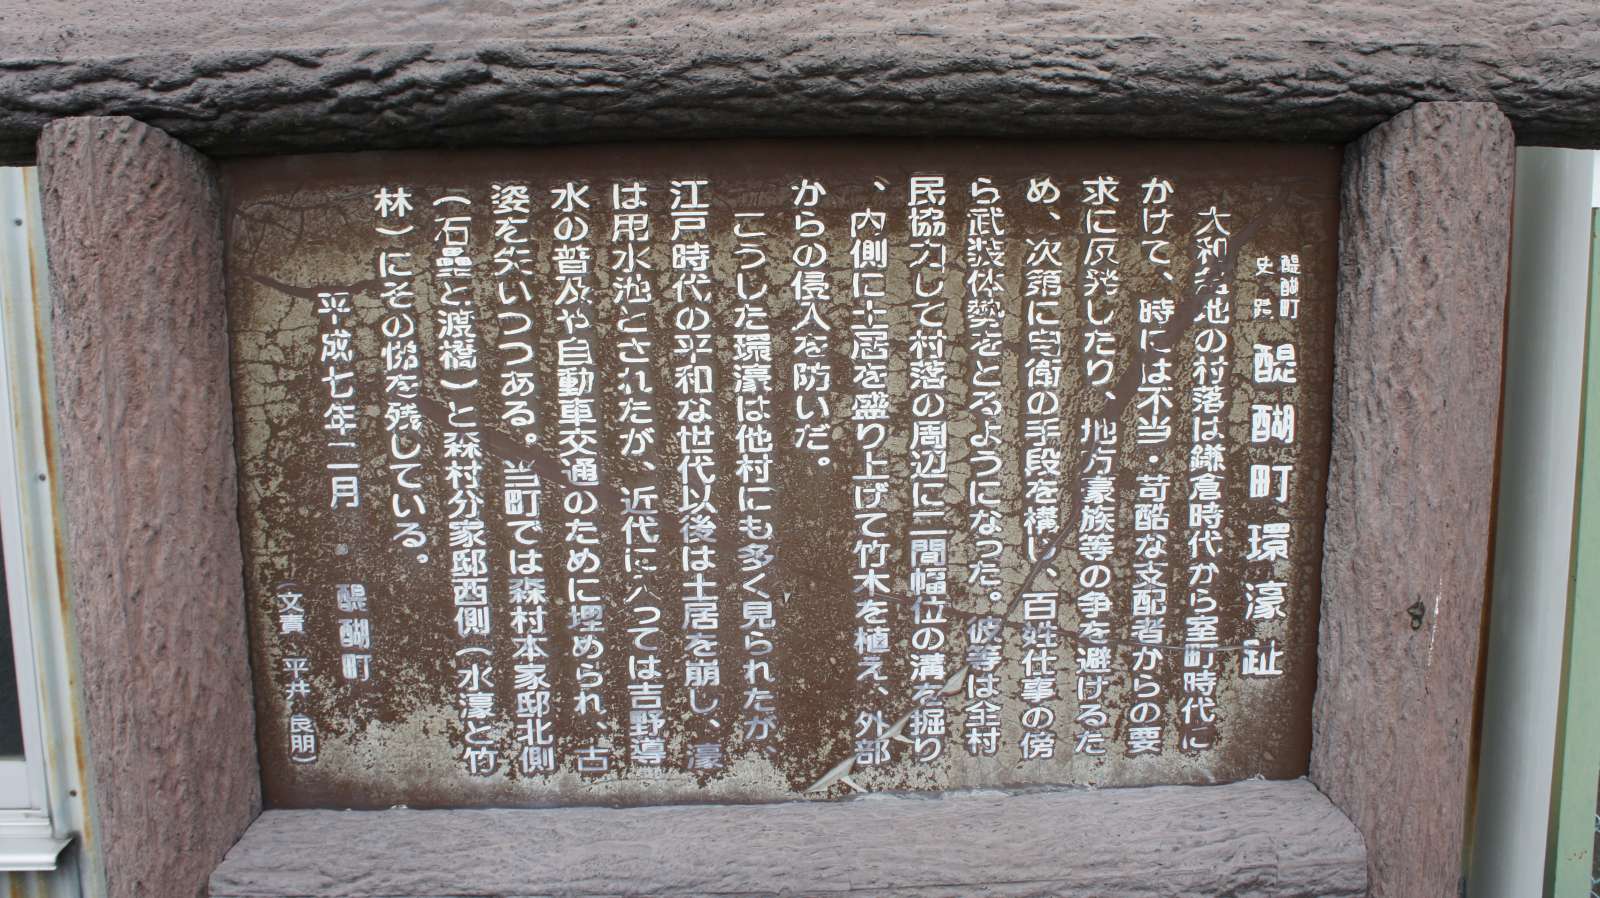 醍醐町
史跡
醍醐町環濠趾
大和盆地の村落は鎌倉時代から室町時代に
かけて、時には不当・苛酷な支配者からの要
求に反発したり、地方豪族等の争を避けるた
め、次第に自衛の手段を構じ、百姓仕事の傍
ら武装体勢をとるようになった。彼等は全村
民協力して村落の周辺に二間幅位の溝を掘り
、内側に土居を盛り上げて竹木を植え、外部
からの侵入を防いだ。
こうした環濠は他村にも多く見られたが、
江戸時代の平和な世代以後は土居を崩し、濠
は用水池とされたが、近代に入っては吉野導
水の普及や自動車交通のために埋められ、古
姿を失いつつある。当町では森村本家邸北側
(石塁と渡橋)と森村分家邸西側(水濠と竹
林)にその俤を残している。
平成七年二月
醍醐町
(文責、平井良朋)